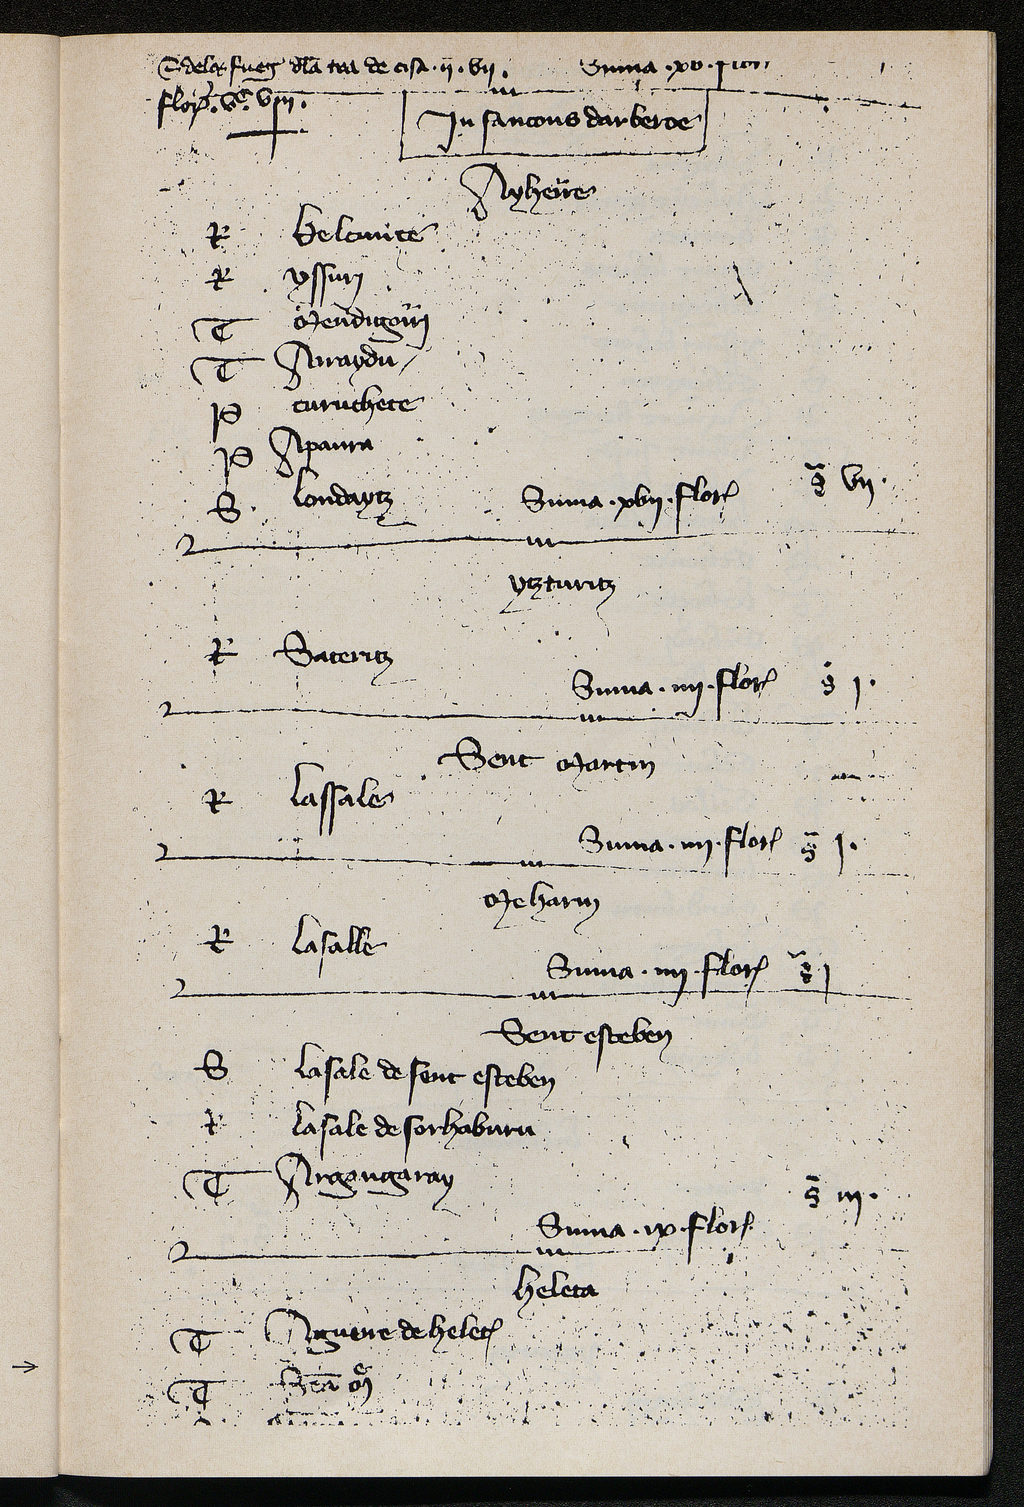 S dels fueg dla tra de cisa · ii · vii · Suma · xv · flor
flor · vc · viii ·
In sancous darberoe
Ayherre
R belcunce
R yssury
T Mendigorry
T Arraydu
P curuchete
P Apaura
S · londaytz Suma · xvii · flor s vii ·
ytzturitz
R Sateritz
Suma · iiii · flor s i ·
Sent Martin
R lassale
Suma · iiii · flor s i ·
Meharin
R lasalle
Suma · iiii · flor s i
Sent esteben
S lasale de sent esteben
R lasale de sorhaburu
T Argongaray
s iii ·
Suma · ix · flor
heleta
T Aguerre de helet
T